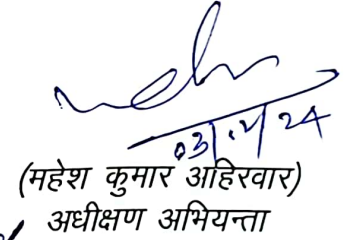 03/12/24
(महेश कुमार अहिरवार)
अधीक्षण अभियन्ता